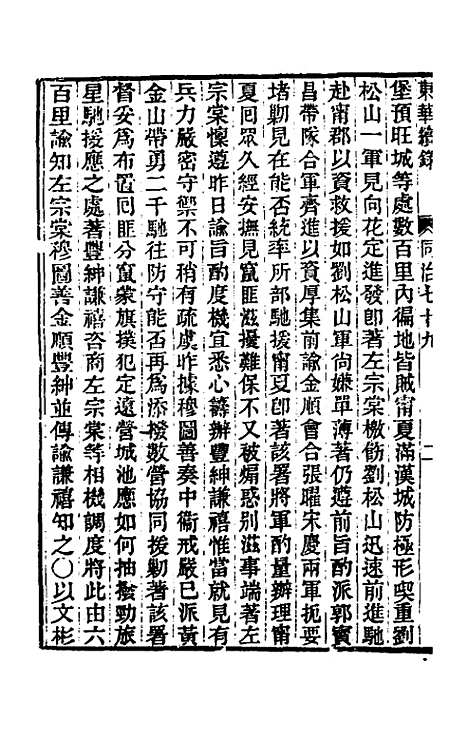 東華續錄 同治七十九 二
堡預旺城等處數百里內徧地皆賊甯夏滿漢城防極形喫重劉
松山一軍見向花定進發卽著左宗棠檄飭劉松山迅速前進馳
赴甯郡以資救援如劉松山軍尙嫌單薄著仍遵前旨酌派郭寶
昌帶隊合軍齊進以資厚集前諭金順會合張曜宋慶兩軍扼要
堵勦見在能否統率所部馳援甯夏卽著該署將軍酌量辦理甯
夏回眾久經安撫見竄匪滋擾難保不又被煽惑别滋事端著左
宗棠懍遵昨日諭旨酌度機宜悉心籌辦豐紳謙禧惟當就見有
兵力嚴密守禦不可稍有疏虞昨據穆圖善奏中衞戒嚴已派黃
金山帶勇二千馳往防守能否再為添撥數營協同援勦著該署
督妥為布置囘匪分竄蒙旗撲犯定遠營城池應如何抽撥勁旅
星馳援應之處著豐紳謙禧咨商左宗棠等相機調度將此由六
百里諭知左宗棠穆圖善金順豐紳並傳諭謙禧知之○以文彬